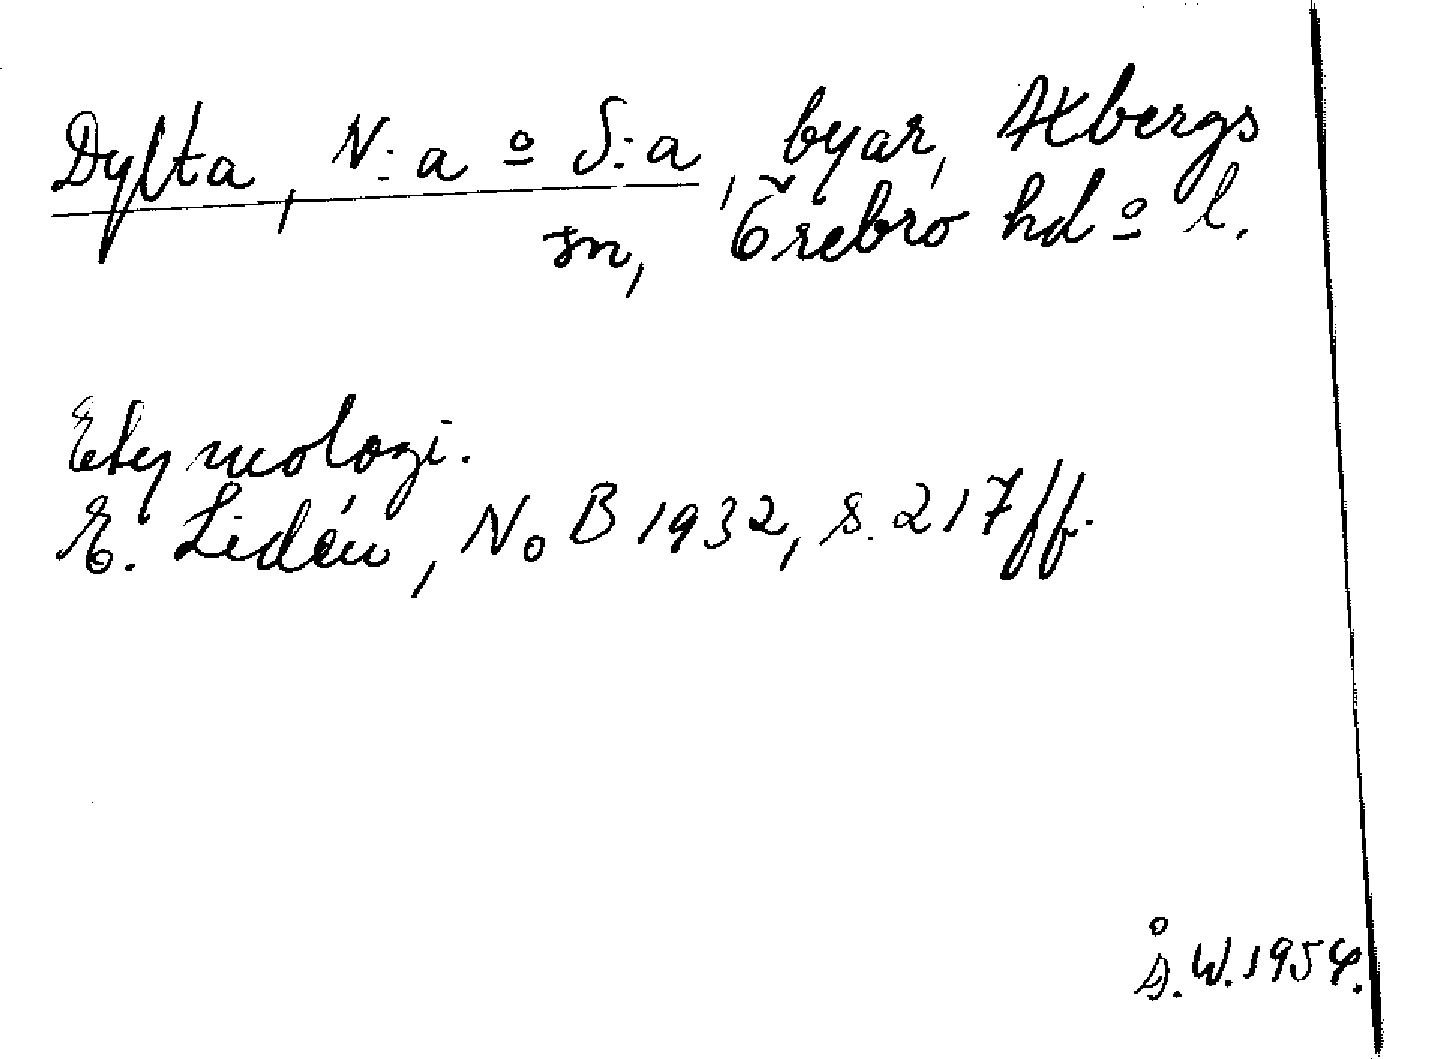 Dylta, N:a o S:a, byar, Axbergs
sn, Örebro hd o l.
Etymologi.
E. Lidén, NoB 1932, s. 217 ff.
Å.W. 1954.